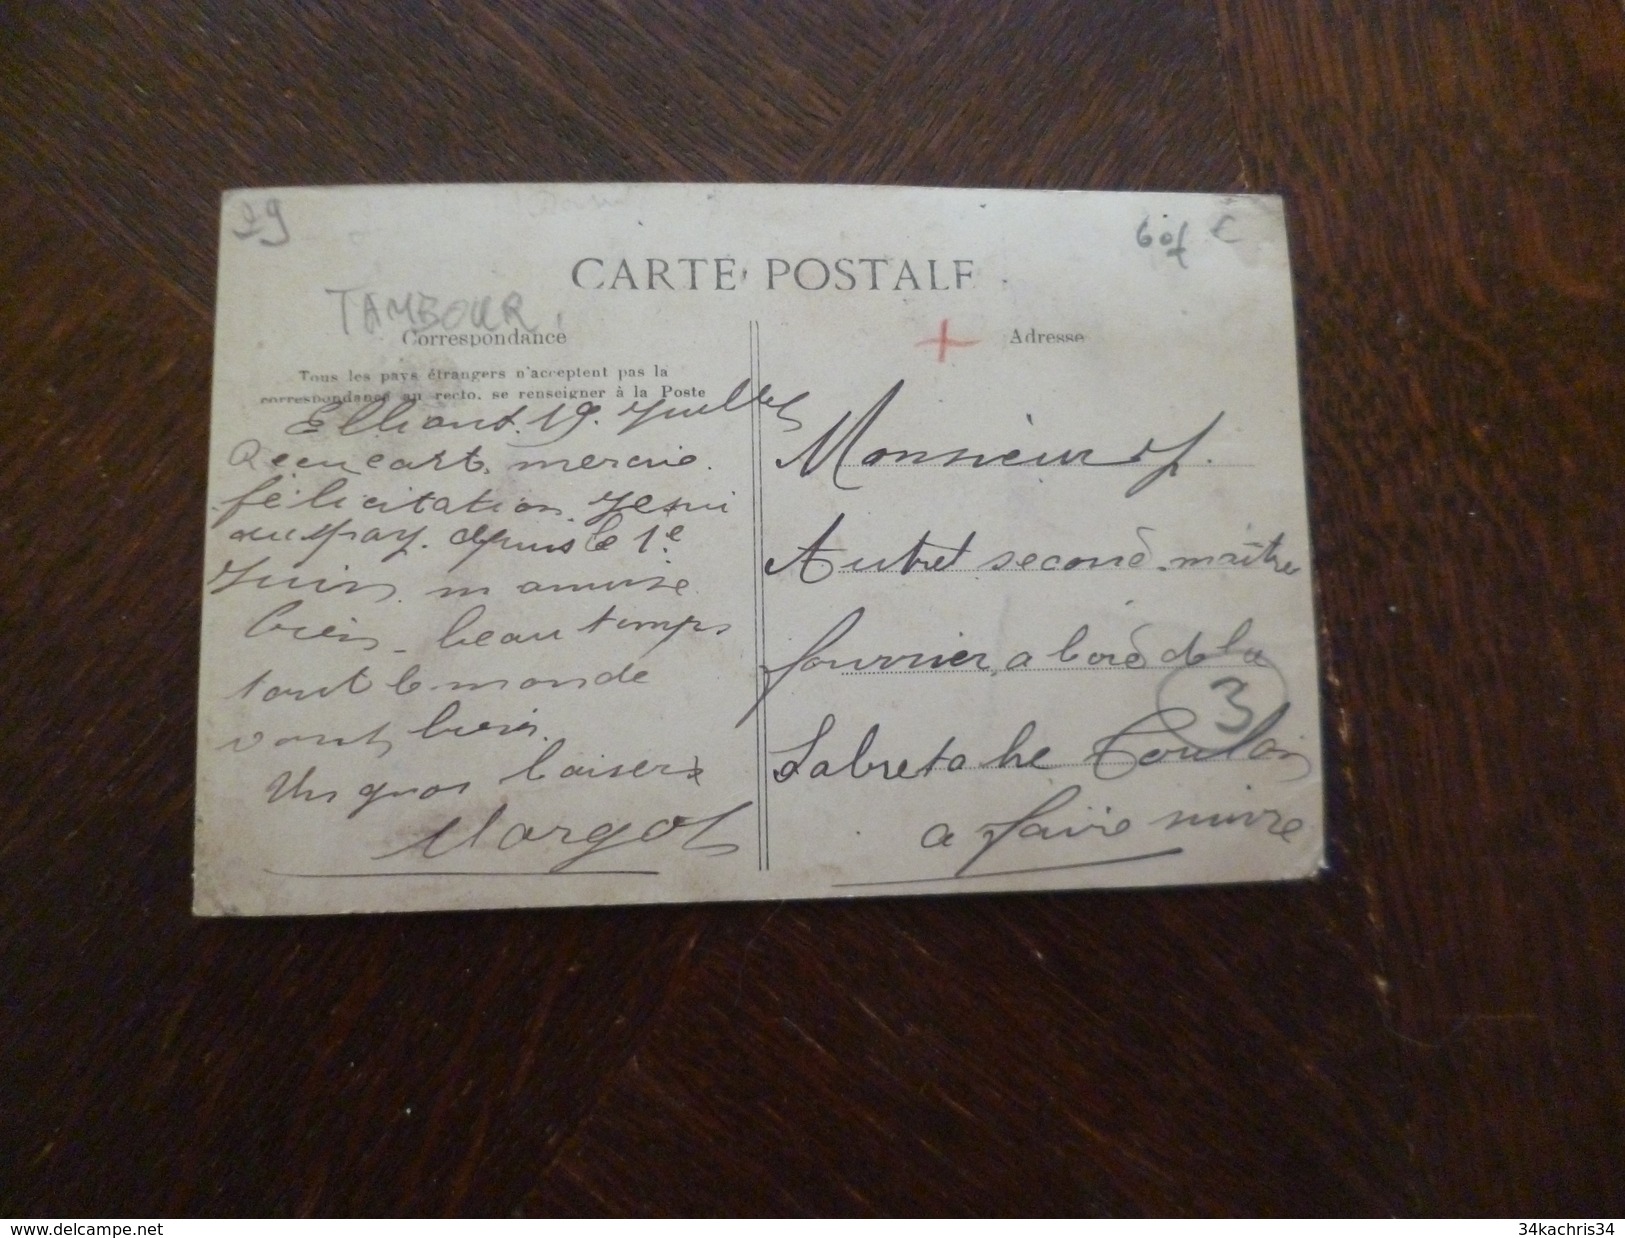 29
60f €
CARTE POSTALE
TAMBOUR
Correspondance
Adresse
Tous les pays étrangers n'acceptent pas la
correspondance au recto, se renseigner à la Poste
Elliant. 19. Juillet
Recu carte mercie.
félicitation. Je sui
au pay. depuis le 1e
Juin. m amuise
bien. beau temps
tout le monde
vont bien.
Un gros baisers
Margot
Monsieur
Autret second. maitre
fourrier, a bord de la
3
Labretahe Toulon
a faire suivre
www.delcampe.net
34kachris34